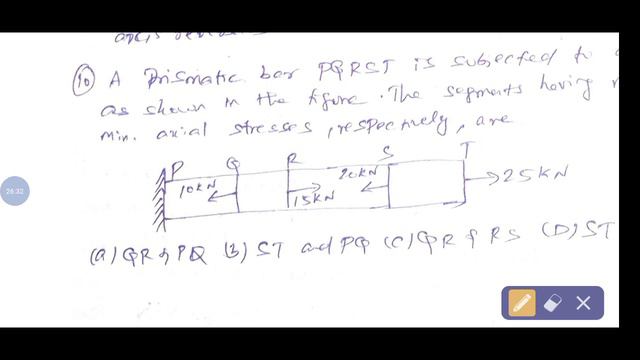 (10) A Prismatic bar PQRST is subjected to
as shown in the figure. The segments having
min. axial stresses, respectively, are
P Q R S T
10KN 15KN 20KN 25KN
(a) QR & PQ (b) ST and PQ (C) QR & RS (D) ST
26:32